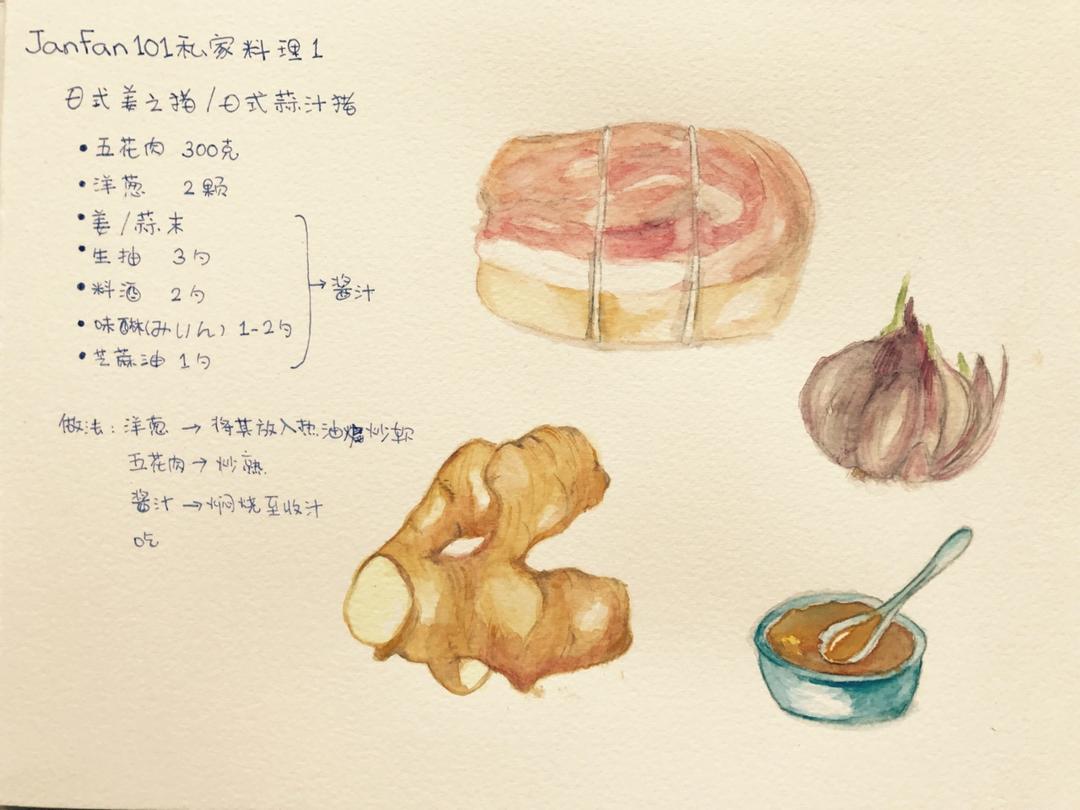 Janfan101私家料理1
日式姜之猪/日式蒜汁猪
• 五花肉 300克
• 洋葱 2颗
• 姜/蒜末
• 生抽 3勺
• 料酒 2勺
→酱汁
• 味醂(みりん) 1-2勺
• 芝麻油 1勺
做法: 洋葱 → 将其放入热油炒软
五花肉 → 炒熟
酱汁 → 焖烧至收汁
吃